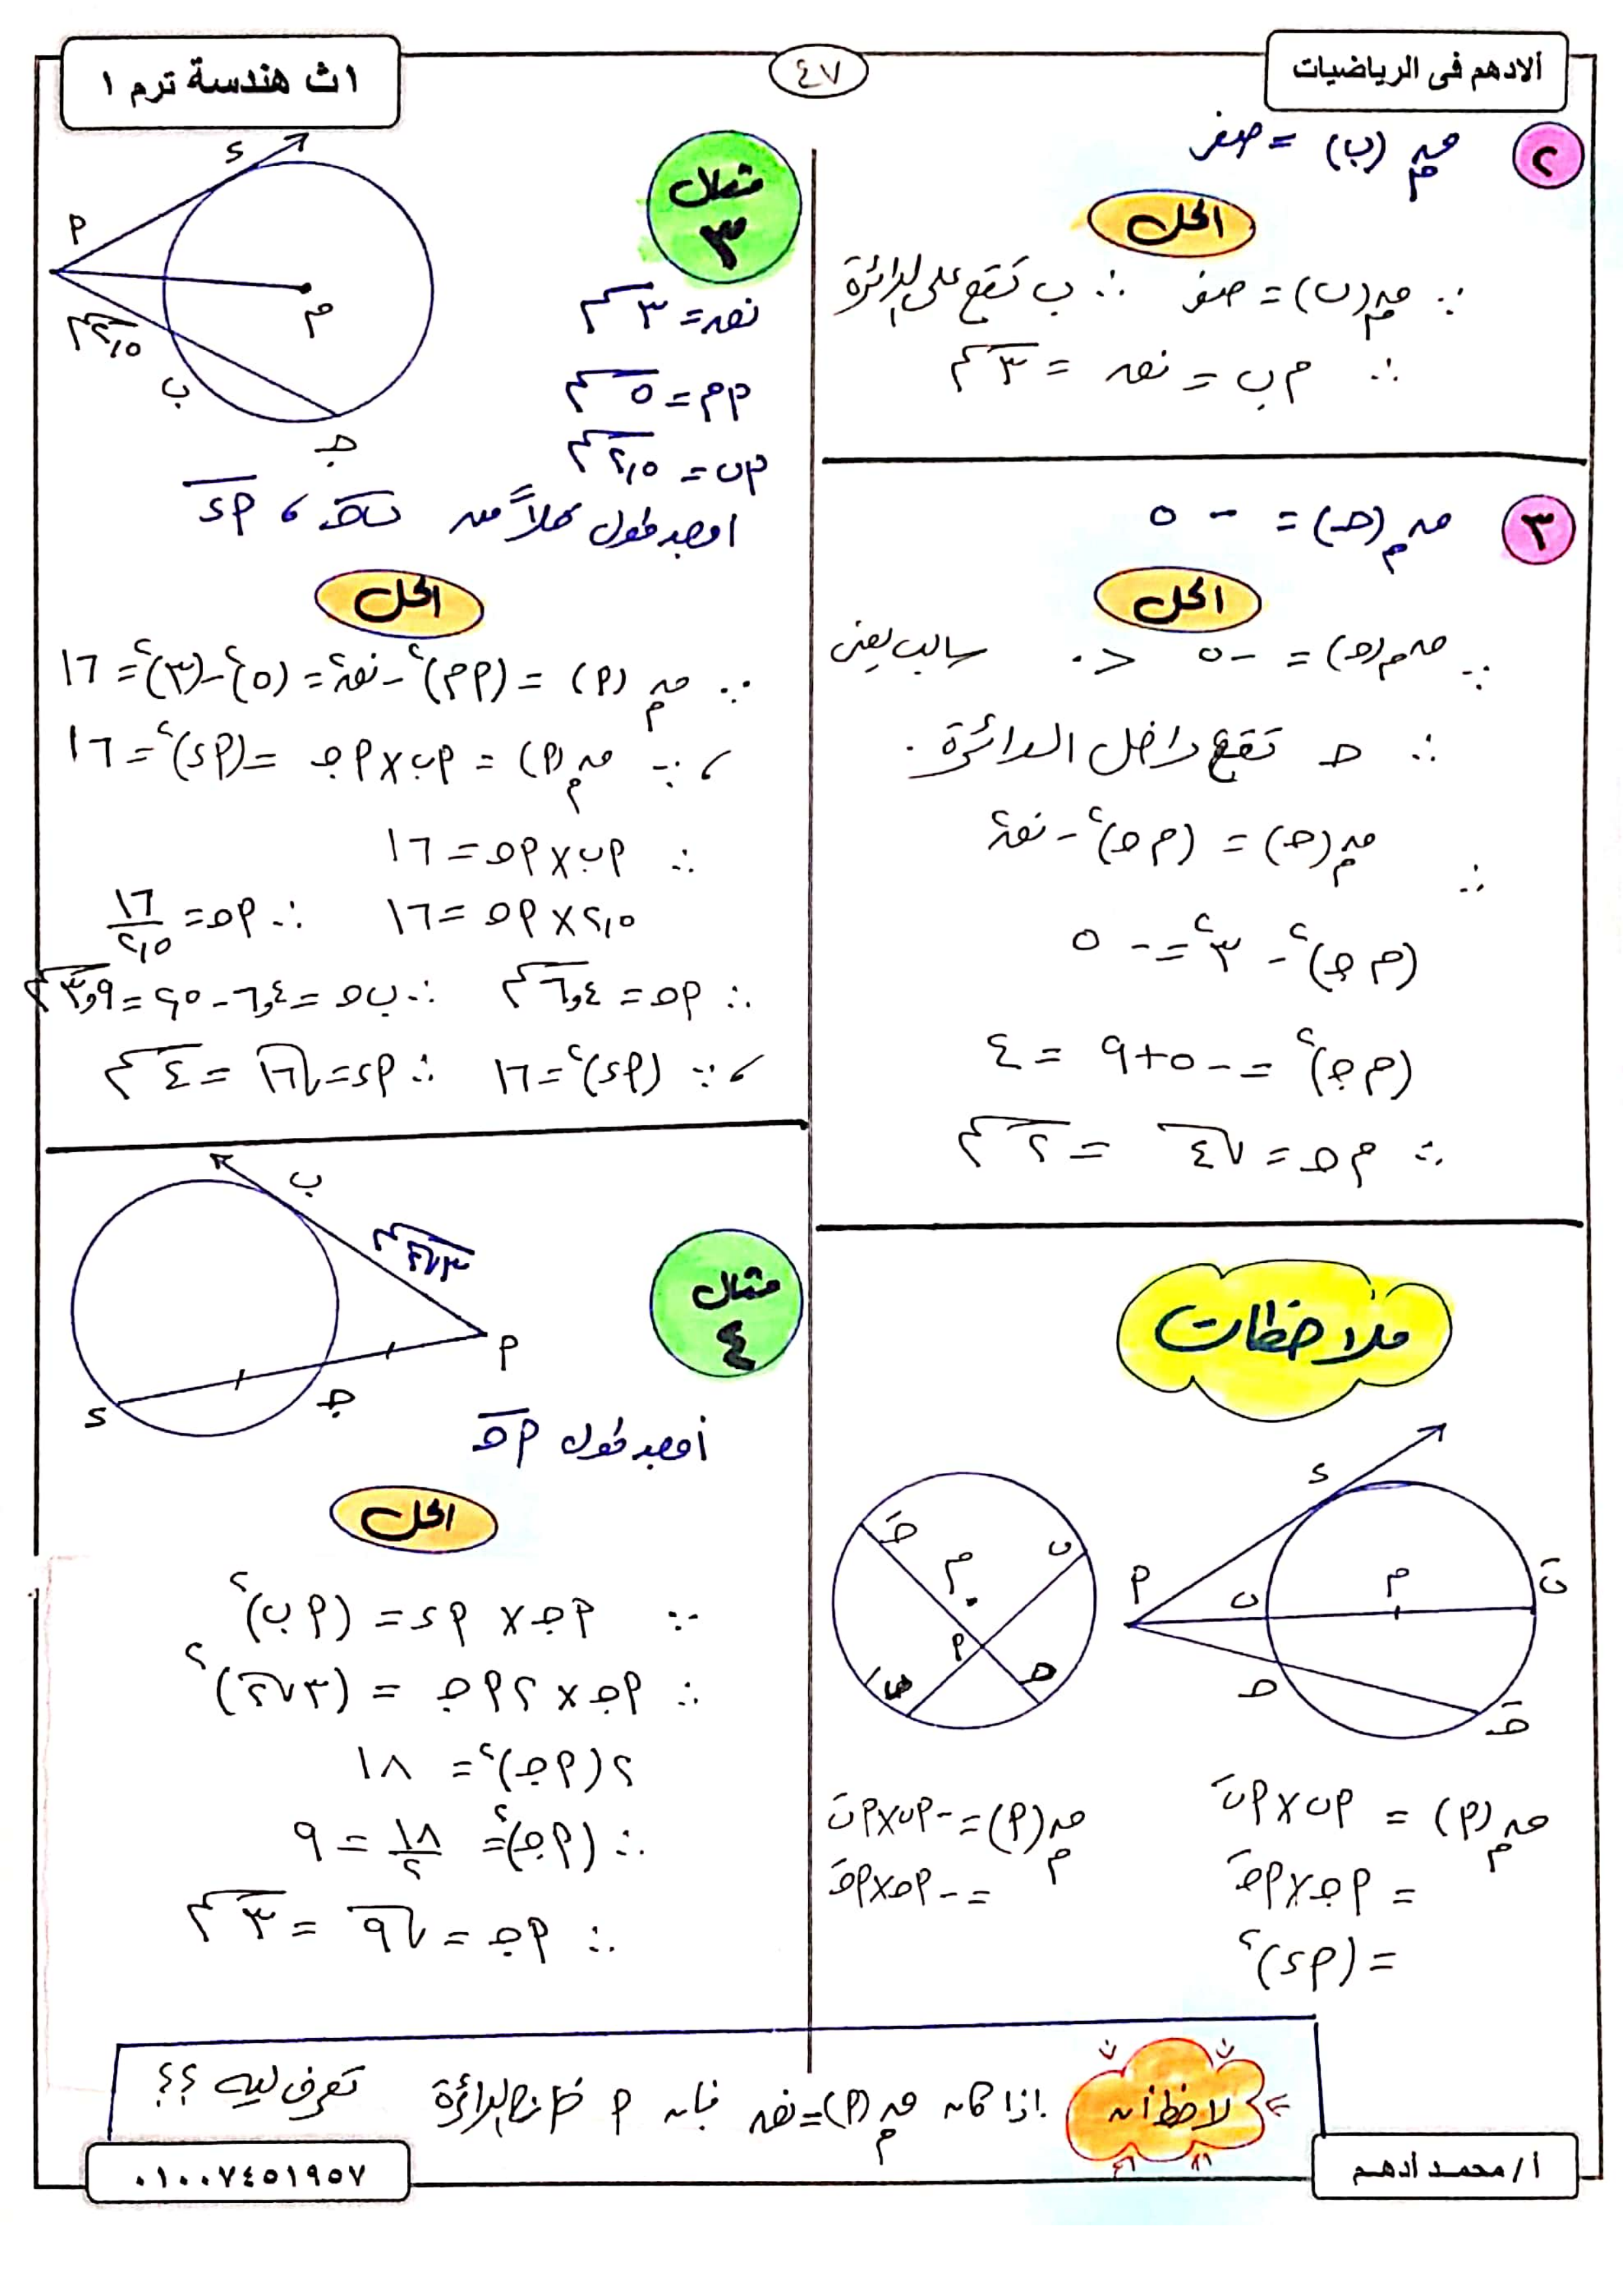 ألادهم فى الرياضيات
٤٧
١ث هندسة ترم ١
٢ قم (ب) = صفر
الحل
∵ قم(ب) = صفر ∴ ب تقع على الدائرة
∴ م ب = نق = ٣ سم
٣ قم (ج) = - ٥
الحل
∵ قم(ج) = -٥ < ٠ سالب يعنى
∴ ج تقع داخل الدائرة.
∴ قم(ج) = (م ج)² - نق²
(م ج)² - ٣² = - ٥
(م ج)² = -٥ + ٩ = ٤
∴ م ج = √٤ = ٢ سم
ملاحظات
جَ
م
ب
أ
ج
بَ
د
أ
ب
م
بَ
ج
جَ
قم(أ) = أب × أبَ
= أج × أجَ
= (أد)²
قم(أ) = - أب × أبَ
= - أج × أجَ
مثال
٣
د
أ
م
٢,٥ سم
ب
ج
نق = ٣ سم
أم = ٥ سم
أب = ٢,٥ سم
اوجد طول كلاً من ب ج ، أد
الحل
∵ قم (أ) = (أم)² - نق² = (٥)² - (٣)² = ١٦
، ∵ قم(أ) = أب × أج = (أد)² = ١٦
∴ أب × أج = ١٦
٢,٥ × أج = ١٦ ∴ أج = ١٦/٢,٥
∴ أج = ٦,٤ سم ∴ ب ج = ٦,٤ - ٢,٥ = ٣,٩ سم
، ∵ (أد)² = ١٦ ∴ أد = √١٦ = ٤ سم
مثال
٤
ب
٢√٣ سم
أ
ج
د
أوجد طول أج
الحل
∵ أج × أد = (أب)²
∴ أج × ٢أج = (٣√٢)²
٢(أج)² = ١٨
∴ (أج)² = ١٨/٢ = ٩
∴ أج = √٩ = ٣ سم
لاحظ أن اذا كان قم(أ) = نق فإن أ خارج الدائرة تعرف ليه ؟؟
أ/محمد أدهم
٠١٠٠٧٤٥١٩٥٧